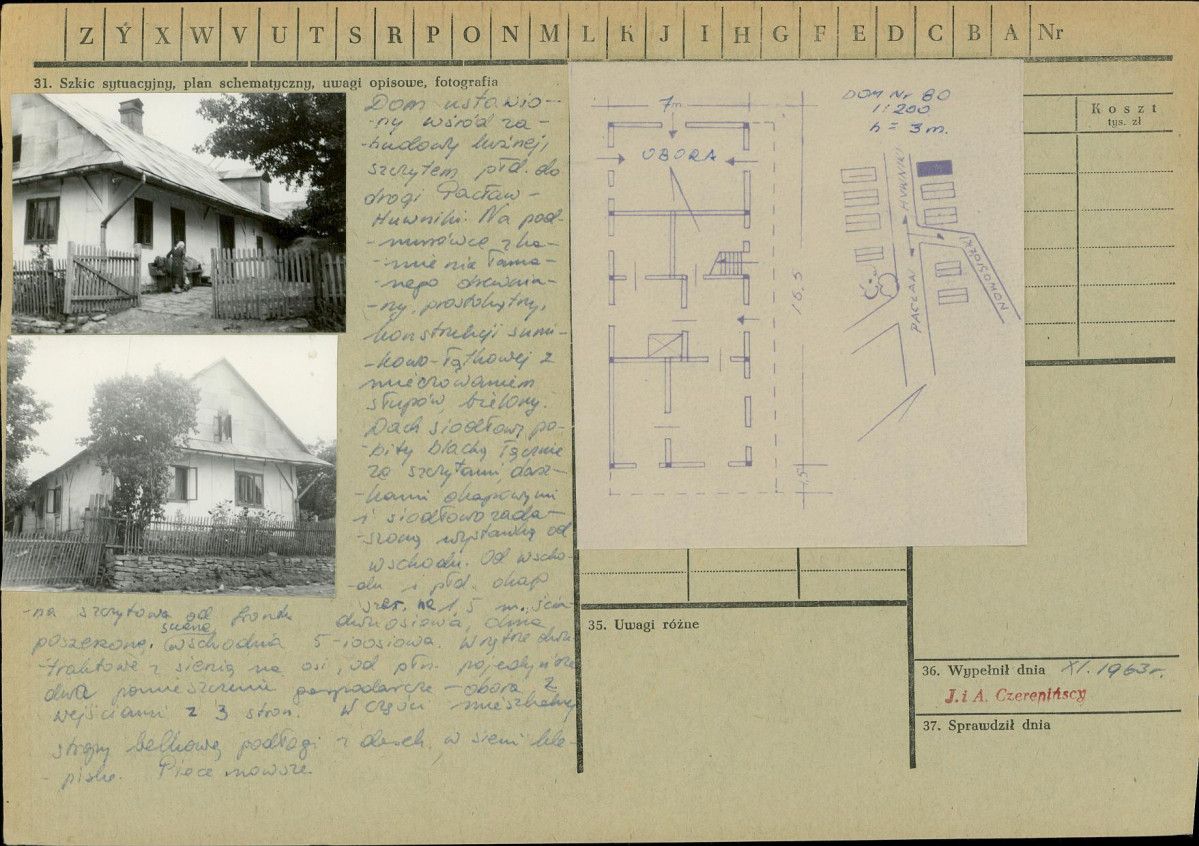 Z Ý X W V U T S R P O N M L K J I H G F E D C B A Nr
31. Szkic sytuacyjny, plan schematyczny, uwagi opisowe, fotografia
Dom ustawio-
-ny wśród za-
-budowy luźnej,
szczytem płd. do
drogi Pacław-
Huwniki. Na pod-
-murówce z ka-
-mienia łama-
-nego drewnia-
-ny, prostokątny,
konstrukcji sumi-
-kowo-łątkowej z
mieczowaniem
słupów, bielony.
Dach siodłowy po-
-bity blachą łącznie
ze szczytami, dasz-
-kami okapowymi
i siodłowo zada-
-szoną wystawką od
wschodu. Od wscho-
-du i płd. okap
szer. na 1,5 m., ścia-
-na szczytowa od frontu dwuosiowa, okna
poszerzone, ściana wschodnia 5-cioosiowa. Wnętrze dwu-
-traktowe z sienią na osi, od płn.
dwa pomieszczenia gospodarcze - obora z
wejściami z 3 stron. W części mieszkalnej
stropy belkowe, podłogi z desek, w sieni kle-
-pisko. Piece nowsze.
7 m.
OBORA
16,5
1,5
DOM Nr 80
1:200
h = 3 m.
HUWNIKI
PACŁAW
NOWOSIÓŁKI
Koszt
tys. zł
35. Uwagi różne
36. Wypełnił dnia XI. 1963 r.
J. i A. Czerepińscy
37. Sprawdził dnia